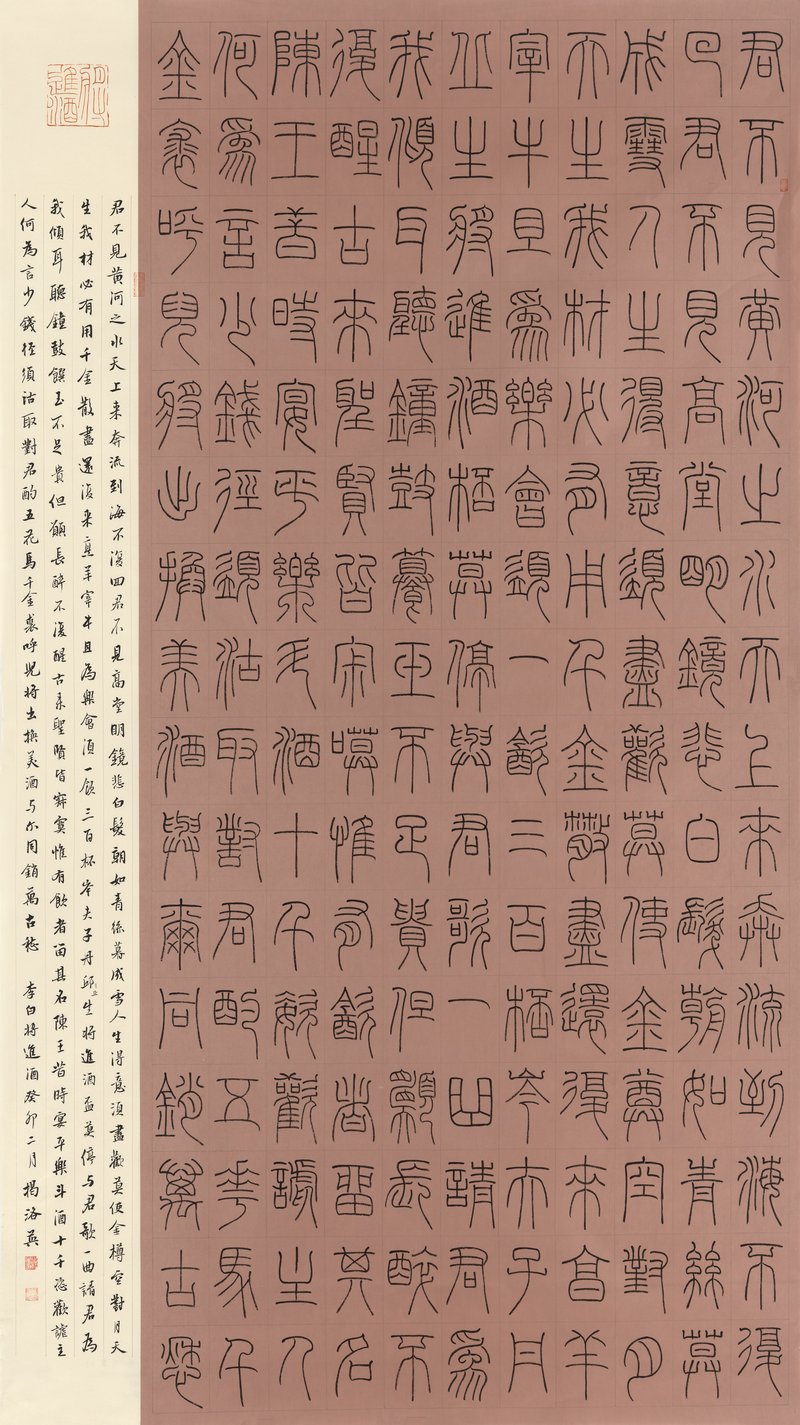 君不見黃河之水天上來奔流到海不復
回君不見高堂明鏡悲白髮朝如青絲暮
成雪人生得意須盡歡莫使金尊空對月
天生我材必有用千金散盡還復來亯羊
宰牛且為樂會須一飲三百桮岑夫子丹
丘生將進酒桮莫停與君歌一曲請君為
我傾耳聽鐘鼓饌玉不足貴但願長醉不
復醒古來聖賢皆寂寞惟有飲者留其名
陳王昔時宴平樂斗酒十千恣歡謔主人
何為言少錢徑須沽取對君酌五花馬千
金裘呼兒將出換美酒與爾同銷萬古愁
將進酒
君不見黃河之水天上来奔流到海不復回君不見高堂明鏡悲白髮朝如青絲暮成雪人生得意須盡歡莫使金樽空對月天
生我材必有用千金散盡還復来烹羊宰牛且為樂會須一飲三百杯岑夫子丹邱生將進酒盃莫停与君歌一曲請君為
我傾耳聽鐘鼓饌玉不足貴但願長醉不復醒古来聖賢皆寂寞惟有飲者留其名陳王昔時宴平樂斗酒十千恣歡謔主
人何為言少錢徑須沽取對君酌五花馬千金裘呼兒将出換美酒与尔同銷萬古愁 李白將進酒癸卯二月 楊洛英